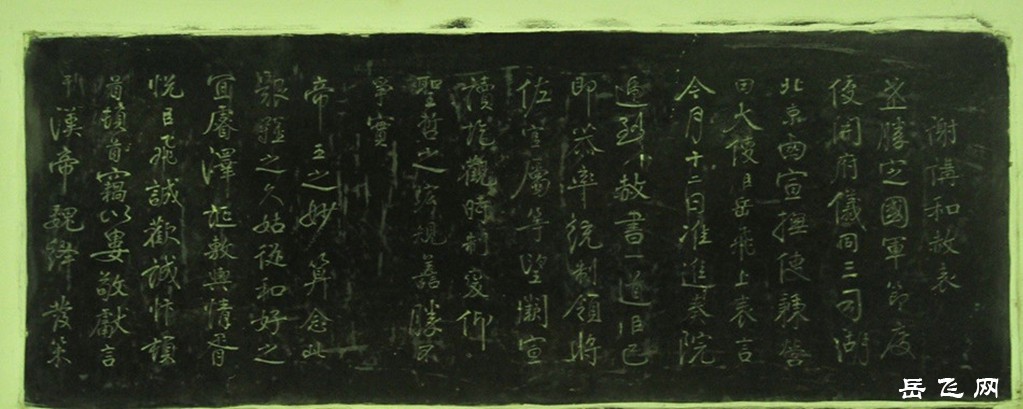 謝講和赦表
武勝定國軍節度
使開府儀同三司湖
北京西宣撫使兼營
田大使臣岳飛上表言
今月十二日准進奏院
遞到赦書一道臣已
即恭率統制領將
佐官屬等望闕宣
讀訖觀時制變仰
聖哲之宏規善勝不
爭實
帝王之妙算念此
艱難之久姑從和好之
宜睿澤誕敷輿情胥
悅臣飛誠歡誠忭頓
首頓首竊以婁敬獻言
於漢帝魏絳發策
岳飞网